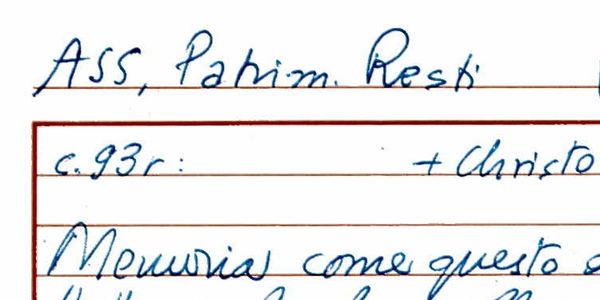 ASS, Patrim. Resti
c. 93r: + Christo
Memoria come questo